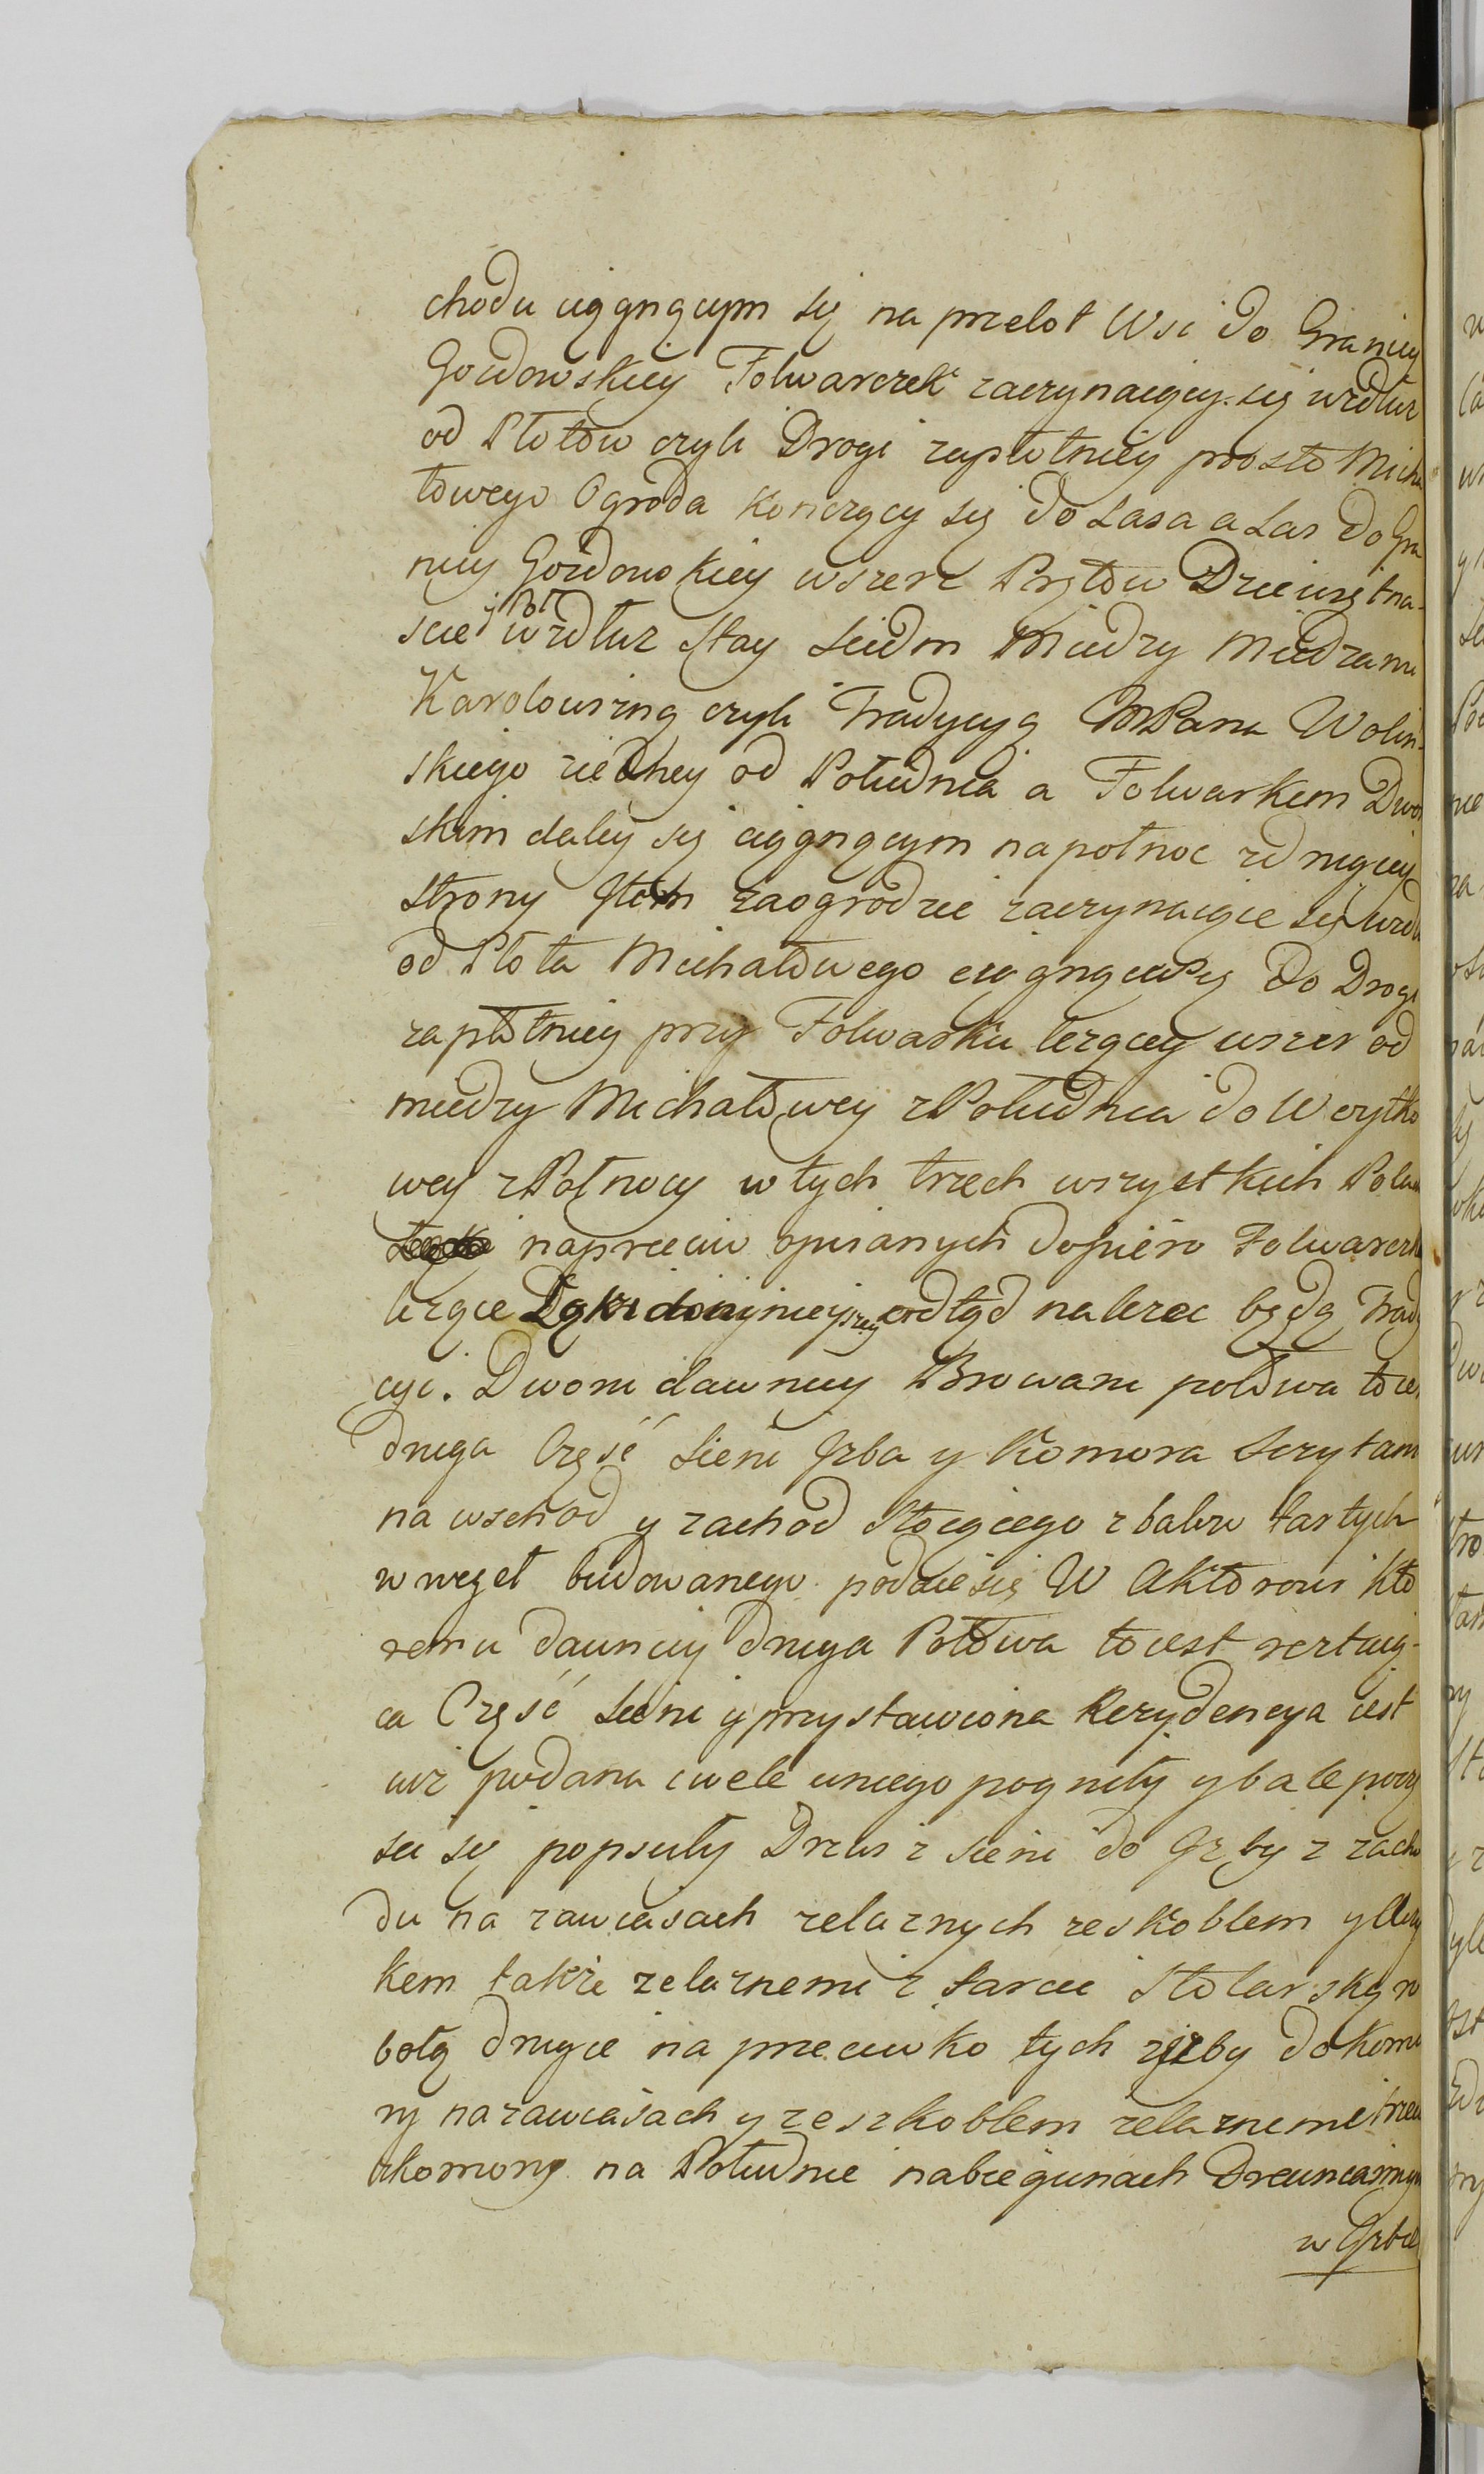 chodu ciągnącym się na przelot Wsi do Granicy
Gozdowskiey Folwarczek zaczynaiący się wzdłuz
od Płotow czyli Drogi zapłotniey prosto Micha
łowego Ogroda konczący się do Lasa a Las do Gra
nicy Gozdowskiey wszerz Prętow Dziewiętna-
scie y Poł wzdłuz Stay Siedm Miedzy Miedzami
Karolowizną czyli Tradycyą Pana Wolin-
skiego ziedney od Południa a Folwarkiem Dwor
skim daley się ciągnącym na połnoc zdrugiey
strony Item Zaogrodzie zaczynaiące się wzdłu
od Płota Michałowego ciągnące się do Drogi
zapłotniey przy Folwarku lezącey wszerz od
miedzy Michałowey z Południa do Woytko
wey z Połnocy w tych trzech wszystkich Polach
naprzeciw opisanych dopiero Folwarczk
lezące Łąki do ninieyszey odtąd nalezec będą Trady
cyi. Dworu dawniey Browaru połowa to ies
druga Część Sieni Izba y Komora Szczytam
na wschod y zachod Stoiącego z balow tartych
w węgeł budowanego podaie się W Aktorowi kto
remu dawniey druga Połowa to iest resztuią-
ca Część Sieni y przystawiona Rezydencya iest
iuz podana cwele u niego pogniły y bale poczę
sci się popsuły Drzwi z sieni do Izby z zacho
du na zawiasach zelaznych ze skoblem y
kem takze zelaznemi z Tarcic Stolarską ro
botą drugie na przeciwko tych z izby do komo
ry na zawiasach y ze szkoblem zelaznemi trzec
z komory na Południe na biegunach Drewnianych
w Izbie